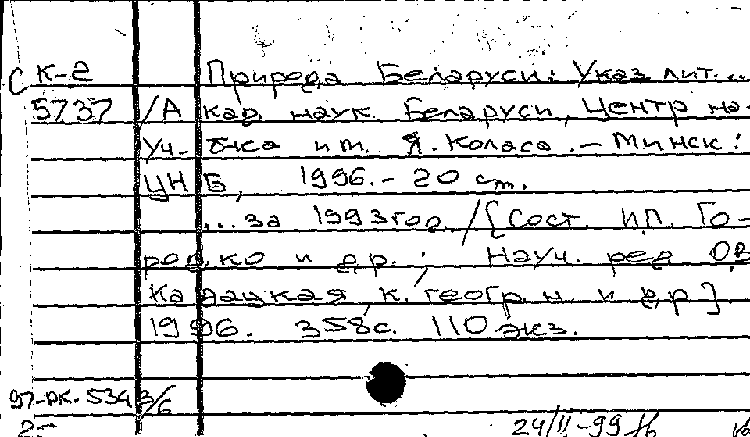 С К-2 Природа Беларуси: Указ. лит...
5737 /Акад. наук Беларуси, Центр. на-
уч. б-ка им. Я. Коласа. - Минск:
ЦНБ, 1996. - 20 см.
...за 1993 год /[Сост. И.П. Го-
ро ко и др.; Науч. ред. О.В.
Кадацкая, к. геогр. н. и др]
1996. 358 с. 110 экз.
97-рк. 534 3/6
24/II-99